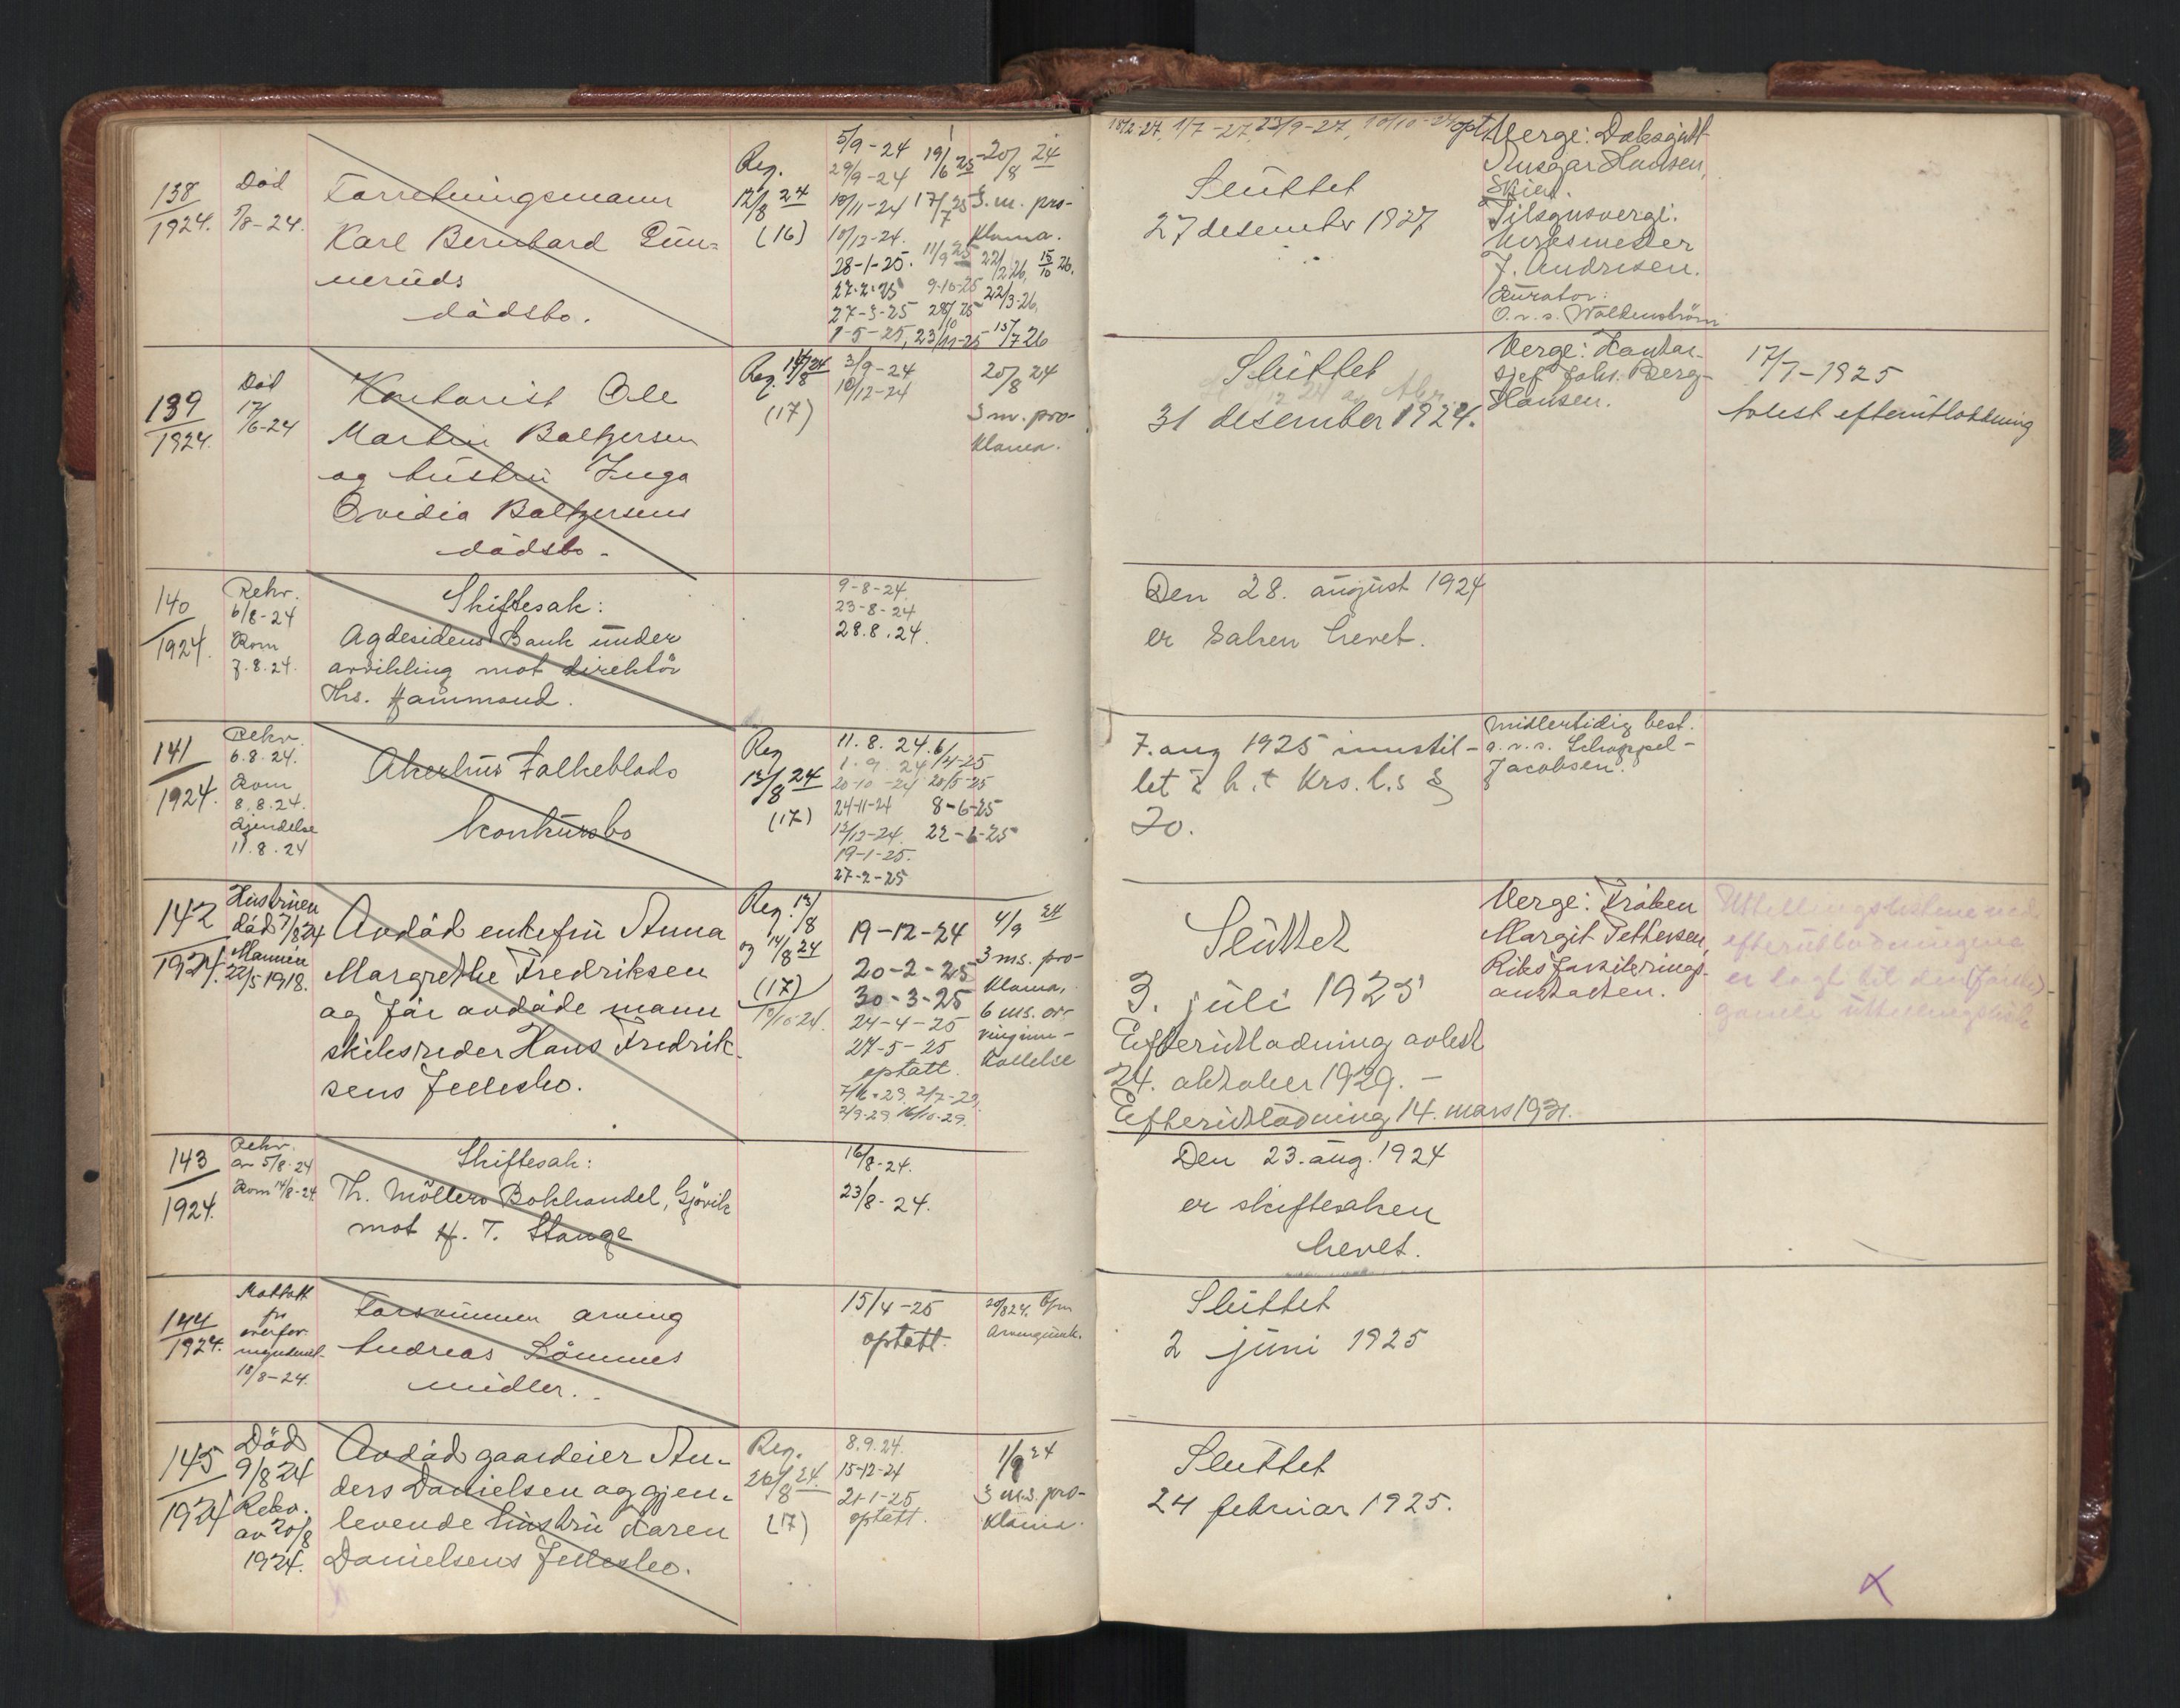 138
1924.
Död
5/8-24.
Forretningsmann
Karl Bernhard Gun-
neruds
dödsbo.
Reg.
12/8 24
(16)
5/9-24
29/9-24
10/11-24
10/12-24.
28-1-25.
27-2-25
27-3-25
8-5-25, 23/11-25
19/6 25
17/7 25
11/9 25
9-10-25
15/7 26
22/2 26, 15/10 26.
22/3-26.
20/8 24
3. m. pro-
klama.
18/2-27, 1/7-27, 23/9-27, 10/10-27 opt
Sluttet
27 desember 1927
Verge:
Ansgar Hansen,
Skien.
Tilsynsverge:
Verksmester
J. Andresen.
Kurator:
O.r.s. Woldenström
139
1924.
Död
17/6-24
Kontorist Ole
Martin Baltzersen
og hustru Inga
Ovidia Baltzersens
dödsbo.
Reg. 14/8 24
(17)
3/9-24
10/12-24
20/8 24
3 m. pro-
klama.
Sluttet
31 desember 1924.
Verge: Kontor-
sjef Johs. Berg-
Hansen.
17/7-1925
avlest efterutlodning
140
1924.
Rekv.
6/8-24
Kom
7.8.24.
Skiftesak:
Agdesidens Bank under
avvikling mot direktör
Ths. Hammond.
9-8-24.
23-8-24
28.8.24.
Den 28. august 1924
er saken hevet.
141
1924.
Rekv.
6.8.24.
Kom
8.8.24.
Kjendelse
11.8.24
Akerhus Folkeblads
konkursbo
Reg
12/8 24
(17)
11.8.24. 6/4-25
1.9.24
20-10-24 20/5-25
24-11-24 8-6-25
12/12-24. 22-6-25
19-1-25.
27-2-25
7. aug 1925 innstil-
let i h.t. Krs. l.s §
70.
Midlertidig best.
o.r.s. Schoppel-
Jacobsen.
142
1924.
Hustruen
död 7/8 24
Mannen
22/5 1918.
Avdöd enkefru Anna
Margrethe Fredriksen
og för avdöde mann
skibsreder Hans Fredrik-
sens fellesbo.
Reg. 13/8
og 14/8 24
(17)
19-12-24
20-2-25
30-3-25
24-4-25
27-5-25
optatt.
4/9 24
3 ms. pro-
klama,
6 ms. ar-
vinginn-
kallelse
Sluttet
3. juli 1925
Efterutlodning avlest
24. oktober 1929. -
Efterutlodning 14. mars 1931.
Verge: Fröken
Margit Pettersen,
Riksforsikrings-
anstalten.
143
1924.
Rekv.
av 5/8-24
Kom 14/8-24
Skiftesak:
Th. Möllers Bokhandel, Gjövik
mot H. T. Stange
16/8-24.
23/8-24.
Den 23. aug. 1924
er skiftesaken
hevet.
144
1924.
Mottatt
fra
overfor-
18/8-24.
Forsvunnen arving
Andreas Lömmes
midler.
15/4-25
optatt.
Sluttet
2 juni 1925
145
1924
Död
9/8 24
Rekv.
av 20/8
1924.
Avdöd gaardeier An-
ders Danielsen og gjen-
levende hustru Karen
Danielsens fellesbo.
Reg.
26/8 24.
(17)
8.9.24.
15-12-24
21-1-25
optatt.
1/9 24
3 ms. pro-
klama.
Sluttet
24 februar 1925.